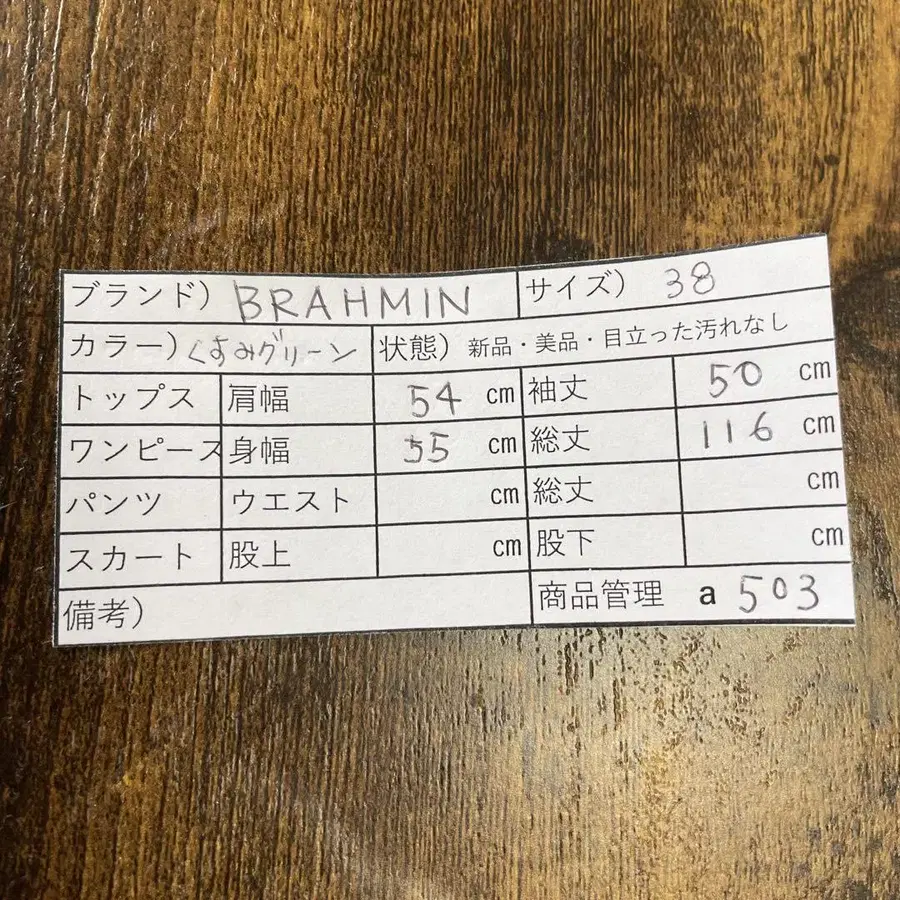 ブランド) BRAHMIN サイズ) 38
カラー) くすみグリーン 状態) 新品・美品・目立った汚れなし
トップス 肩幅 54 cm 袖丈 50 cm
ワンピース 身幅 55 cm 総丈 116 cm
パンツ ウエスト cm 総丈 cm
スカート 股上 cm 股下 cm
備考) 商品管理 a 503